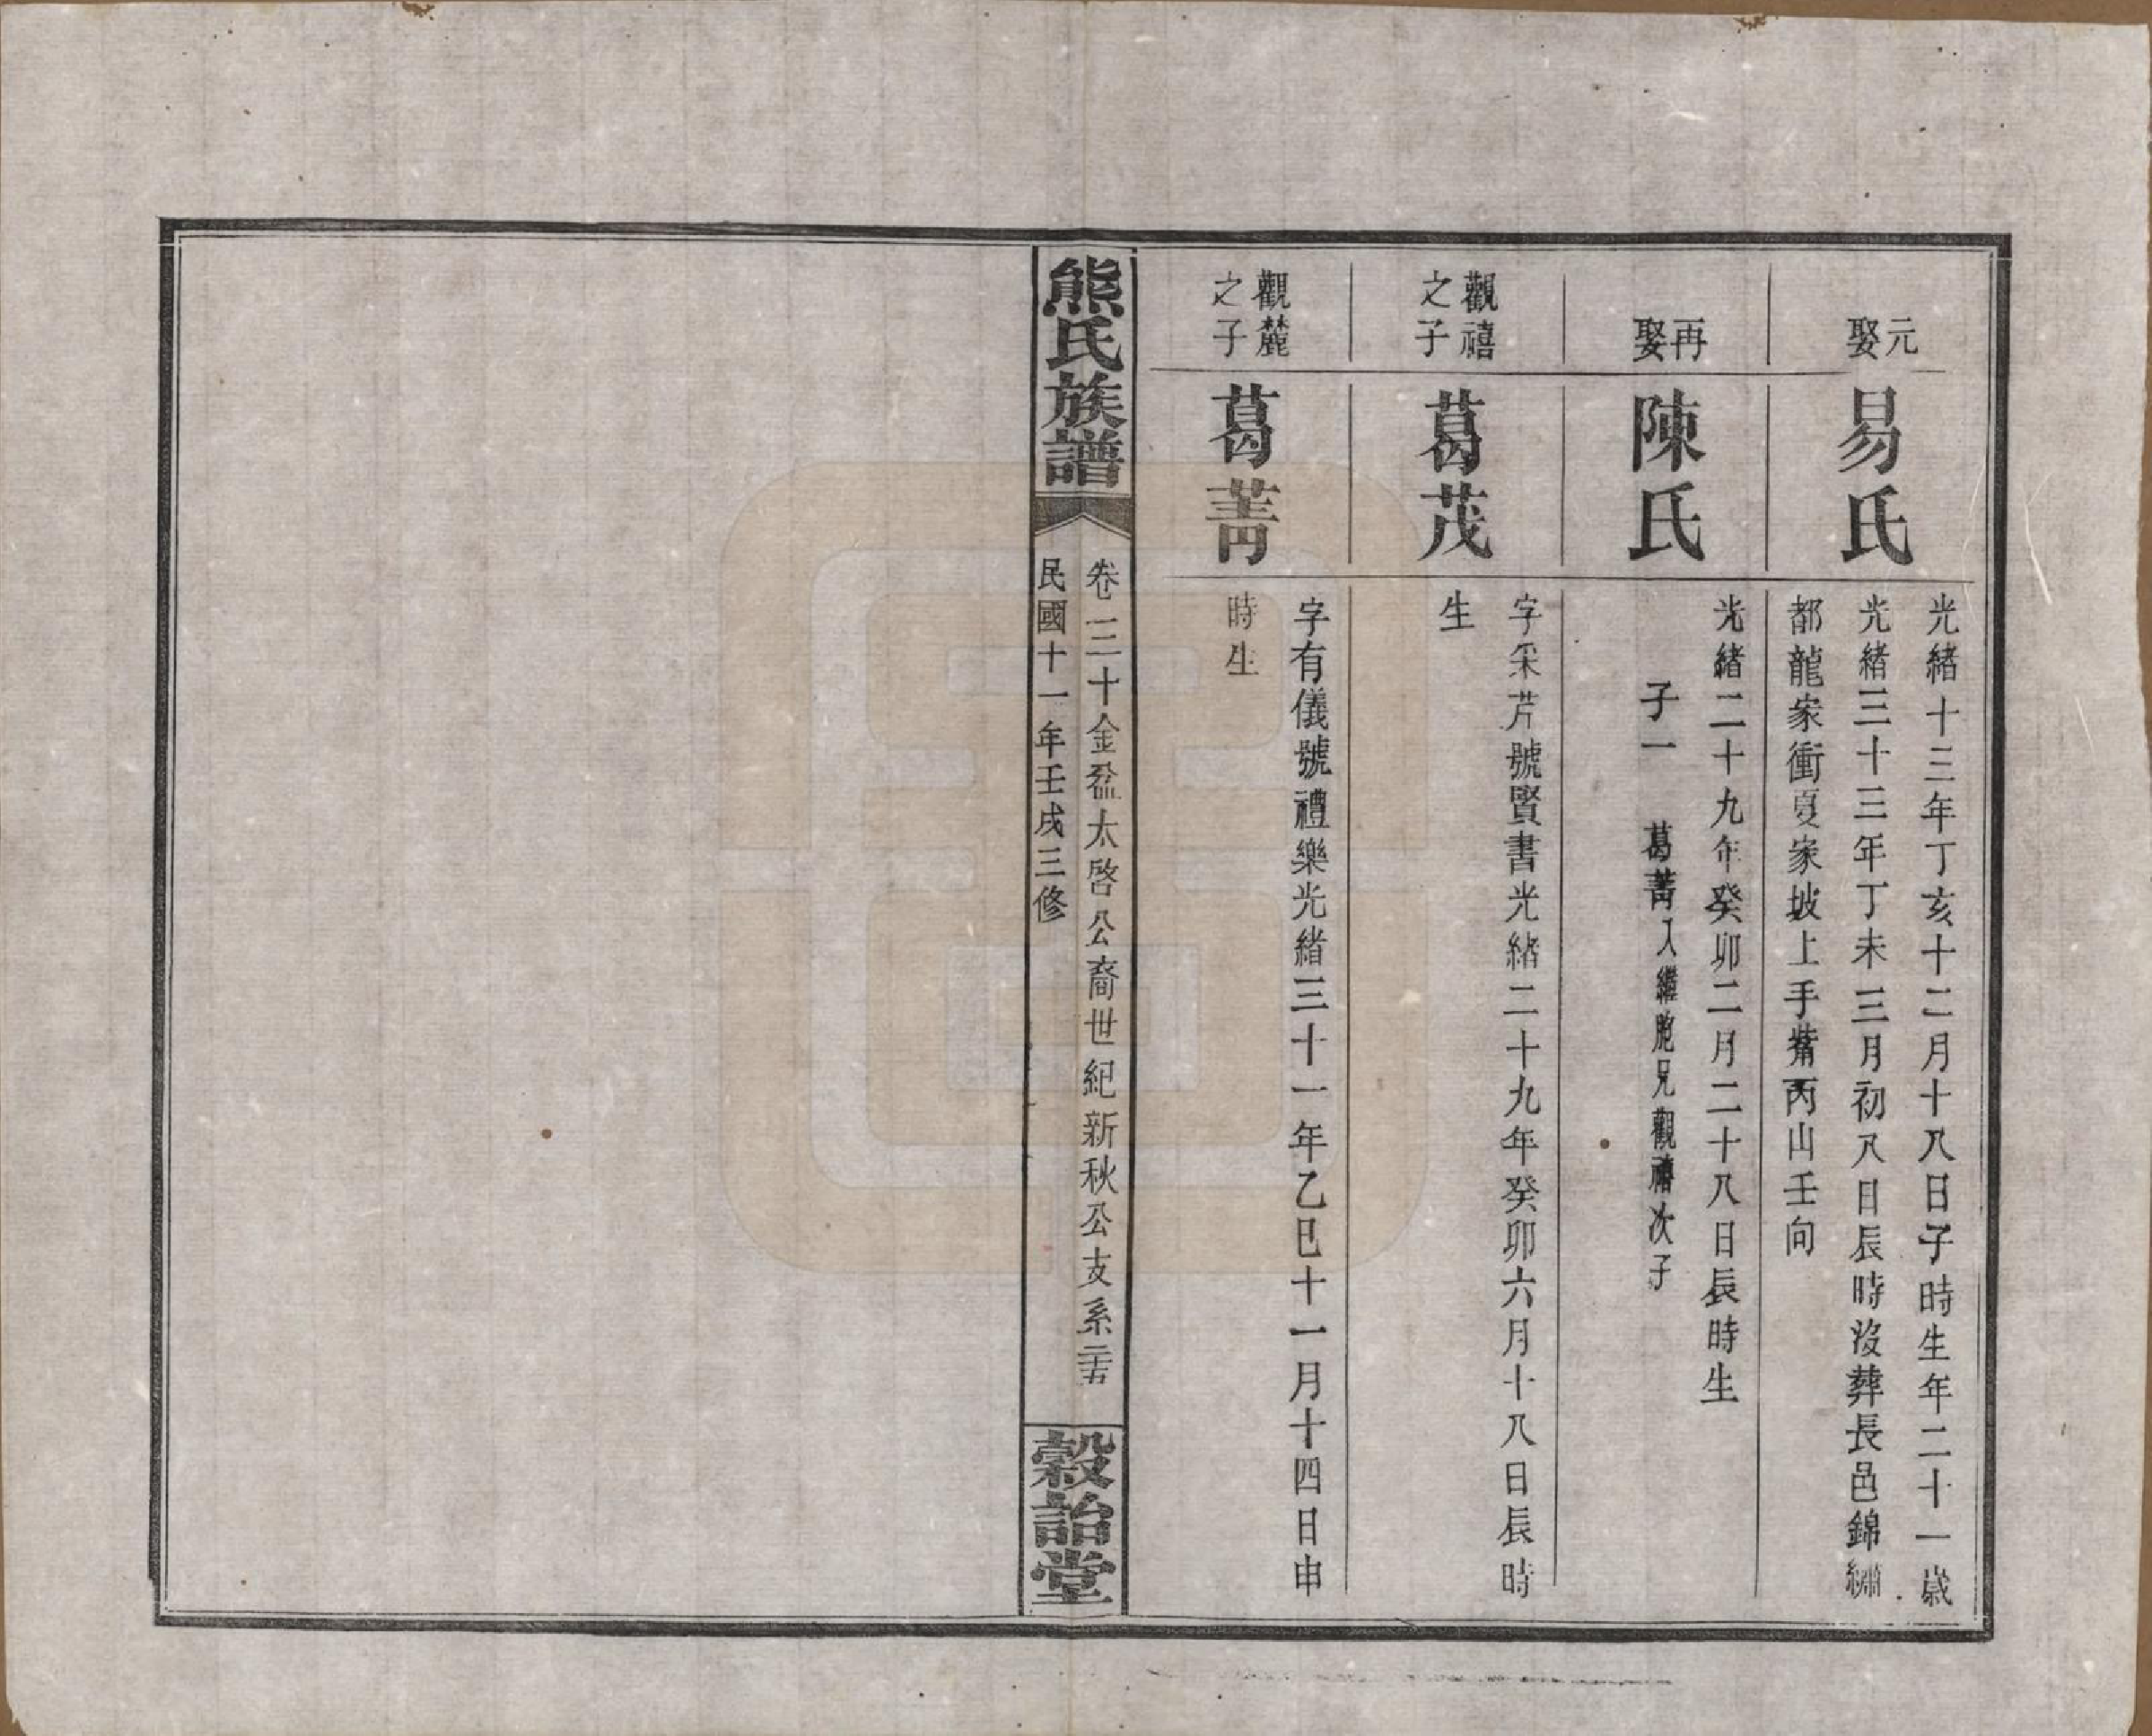 元娶
易氏
光緒十三年丁亥十二月十八日子時生年二十一歲
光緒三十三年丁未三月初八日辰時沒葬長邑錦繡
都龍家衝夏家坡上手觜丙山壬向
再娶
陳氏
光緒二十九年癸卯二月二十八日辰時生
子一 葛菁入繼胞兄觀禧次子
觀禧之子
葛茂
字采芹號賢書光緒二十九年癸卯六月十八日辰時
生
觀麓之子
葛菁
字有儀號禮樂光緒三十一年乙巳十一月十四日申
時生
熊氏族譜
卷三十金盈太啓公裔世紀新秋公支系二十五
民國十一年壬戌三修
穀詒堂